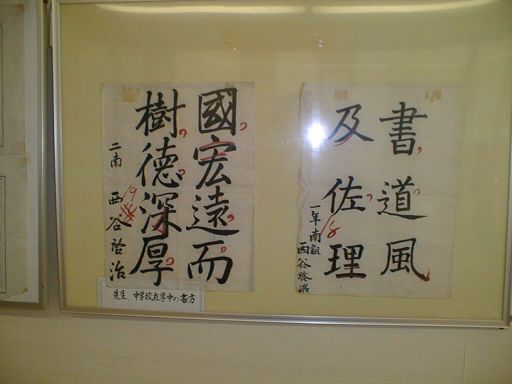 書道風
及佐理
一年南組
西谷啓治
國宏遠而
樹德深厚
二南 西谷啓治
先生 中学校在学中の書方